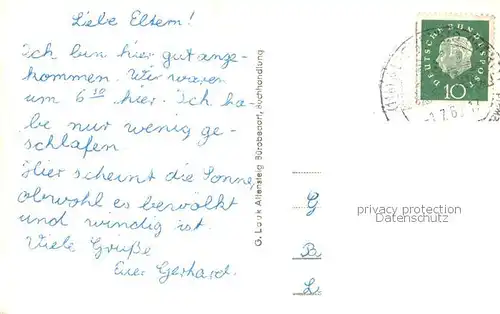 Liebe Eltern!
Ich bin hier gut ange-
kommen. Wir waren
um 6 10 hier. Ich ha-
be nur wenig ge-
schlafen
Hier scheint die Sonne,
obwohl es bewölkt
und windig ist.
Viele Grüße
Euer Gerhard.
G. Lauk Altensteig Bürobedarf, Buchhandlung
DEUTSCHE BUNDESPOST
10
G
B
L
privacy protection
Datenschutz